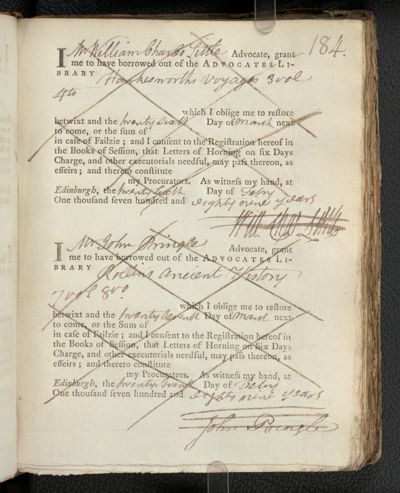 184.
I Mr William Charles Little Advocate, grant
me to have borrowed out of the ADVOCATES LI-
BRARY Hawkesworths Voyages 3 vol
4to
which I oblige me to restore
betwixt and the twenty sixth Day of March next
to come, or the sum of
in case of Failzie; and I consent to the Registration hereof in
the Books of Session, that Letters of Horning on six Days
Charge, and other executorials needful, may pass thereon, as
effeirs; and thereto constitute
my Procurators. As witness my hand, at
Edinburgh, the twenty sixth Day of Febry
One thousand seven hundred and eighty nine years
Will Chas Little
I Mr John Pringle Advocate, grant
me to have borrowed out of the ADVOCATES LI-
BRARY Rollins Ancient History
7 vol 8vo
which I oblige me to restore
betwixt and the twenty seventh Day of March next
to come, or the Sum of
in case of Failzie; and I consent to the Registration hereof in
the Books of Session, that Letters of Horning on six Days
Charge, and other executorials needful, may pass thereon, as
effeirs; and thereto constitute
my Procurators. As witness my hand, at
Edinburgh, the twenty seventh Day of Febry
One thousand seven hundred and eighty nine years
John Pringle